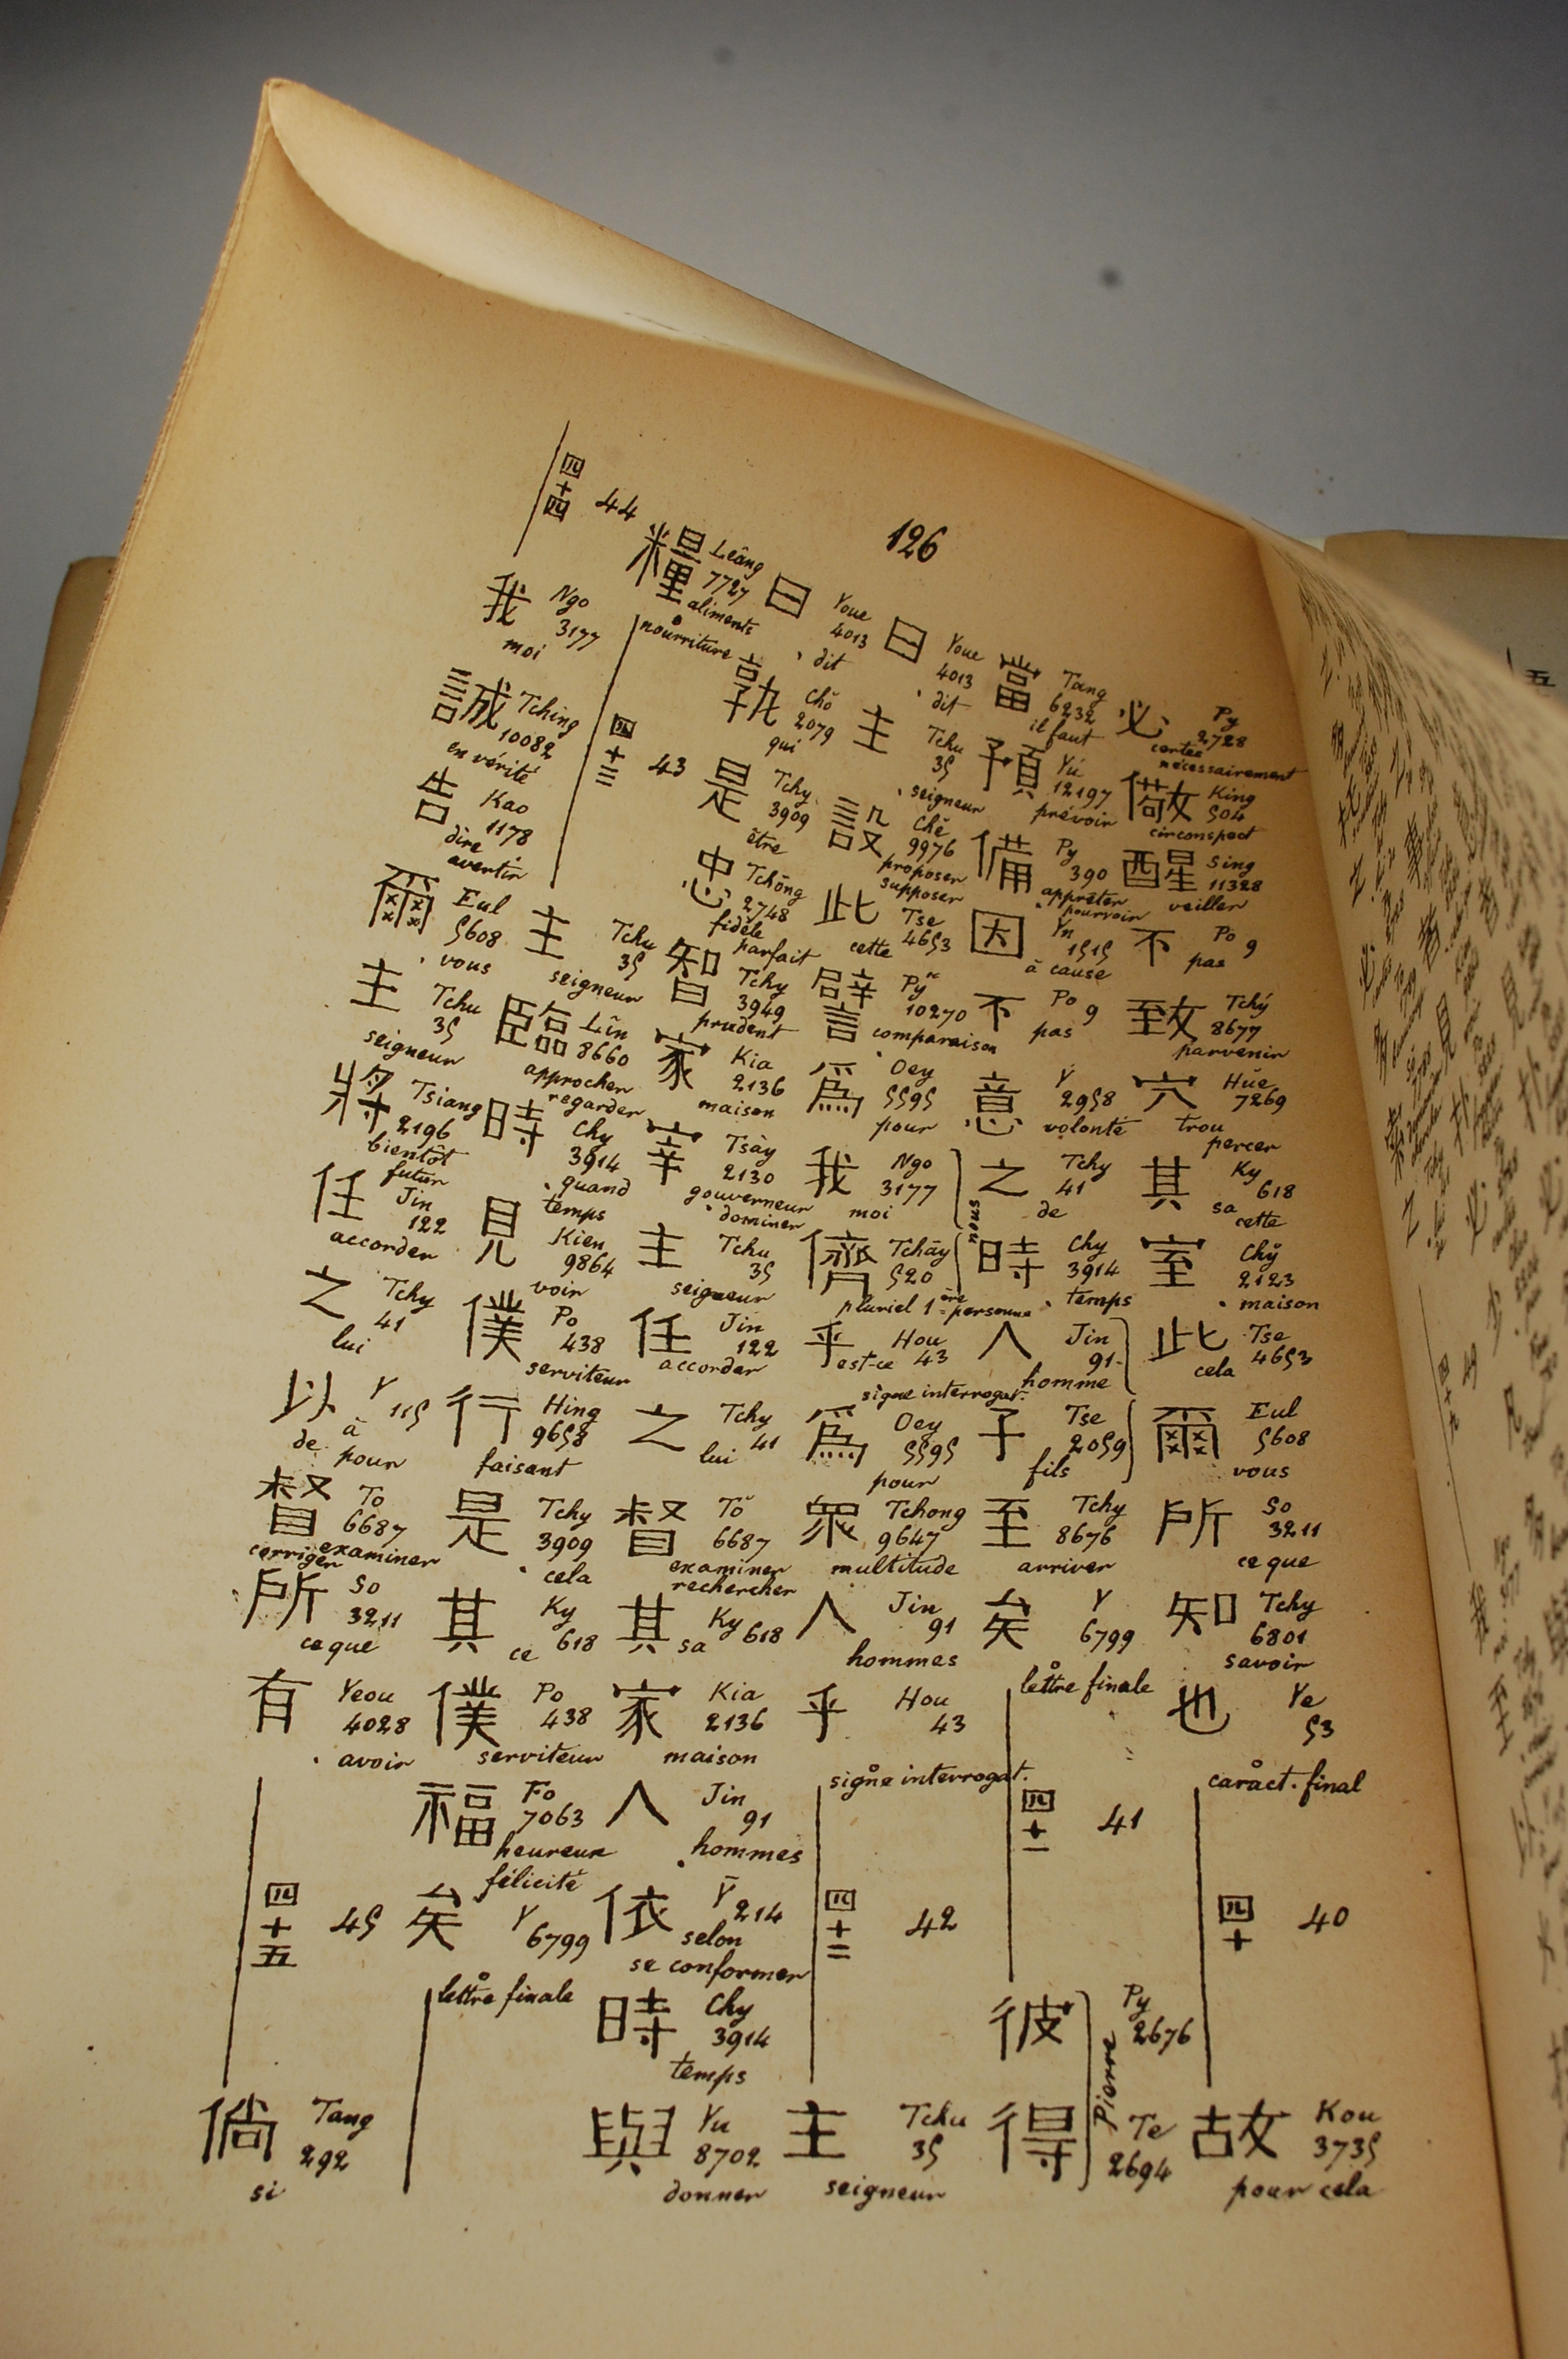 126
必 Py 2728 certes nécessairement
儆 King 504 circonspect
醒 Sing 11328 veiller
不 Po 9 pas
致 Tchý 8677 parvenir
穴 Hüe 7269 trou percer
其 Ky 618 sa cette
室 Chy 2123 maison
此 Tse 4653 cela
爾 Eul 5608 vous
所 So 3211 ce que
知 Tchy 6801 savoir
也 Ye 53 caract. final
四十 40
故 Kou 3735 pour cela
當 Tang 6232 il faut
預 Yú 12197 prévoir
備 Py 390 apprêter pourvoir
因 Yn 1515 à cause
不 Po 9 pas
意 Y 2958 volonté
之 Tchy 41 de
時 Chy 3914 temps
人 Jin 91 homme
子 Tse 2059 fils
至 Tchy 8676 arriver
矣 Y 6799 lettre finale
四十一 41
彼 Py 2676
得 Te 2694
Pierre
曰 Youe 4013 dit
主 Tchu 35 seigneur
設 Chĕ 9976 proposer supposer
此 Tse 4653 cette
譬 Py 10270 comparaison
爲 Oey 5595 pour
我 Ngo 3177 moi
儕 Tchāy 520 pluriel 1ère personne
nous
乎 Hou 43 est-ce signe interrogat.
爲 Oey 5595 pour
衆 Tchong 9647 multitude
人 Jin 91 hommes
乎 Hou 43 signe interrogat.
四十二 42
主 Tchu 35 seigneur
曰 Youe 4013 dit
孰 Chŏ 2079 qui
是 Tchy 3909 être
忠 Tchōng 2748 fidèle parfait
智 Tchy 3949 prudent
家 Kia 2136 maison
宰 Tsày 2130 gouverneur dominer
主 Tchu 35 seigneur
任 Jin 122 accorder
之 Tchy 41 lui
督 Tŏ 6687 examiner rechercher
其 Ky 618 sa
家 Kia 2136 maison
人 Jin 91 hommes
依 Y 214 selon se conformer
時 Chy 3914 temps
與 Yu 8702 donner
糧 Leâng 7727 aliments nourriture
四十三 43
主 Tchu 35 seigneur
臨 Lîn 8660 approcher regarder
時 Chy 3914 quand temps
見 Kien 9864 voir
僕 Po 438 serviteur
行 Hing 9658 faisant
是 Tchy 3909 cela
其 Ky 618 ce
僕 Po 438 serviteur
福 Fo 7063 heureux félicité
矣 Y 6799 lettre finale
四十四 44
我 Ngo 3177 moi
誠 Tching 10082 en vérité
告 Kao 1178 dire avertir
爾 Eul 5608 vous
主 Tchu 35 seigneur
將 Tsiang 2196 bientôt futur
任 Jin 122 accorder
之 Tchy 41 lui
以 Y 115 à de pour
督 To 6687 examiner corriger
所 So 3211 ce que
有 Yeou 4028 avoir
四十五 45
倘 Tang 292 si